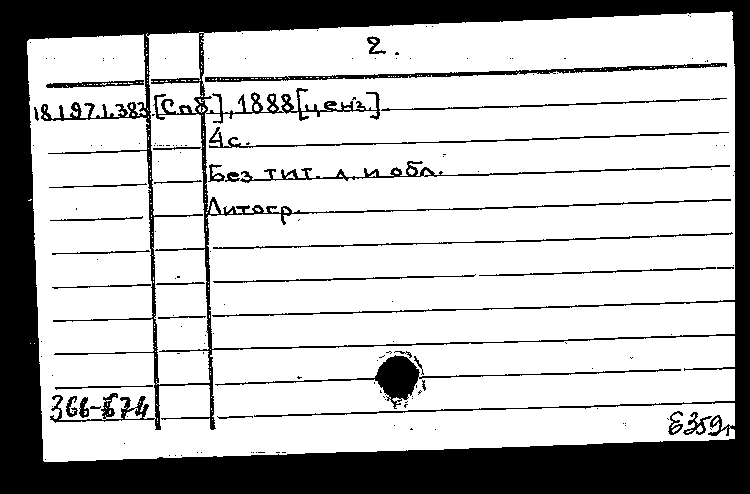 2.
18.197.1.383 [Спб.], 1888 [ценз.].
4 с.
Без тит. л. и обл.
Литогр.
366-674
Е359г